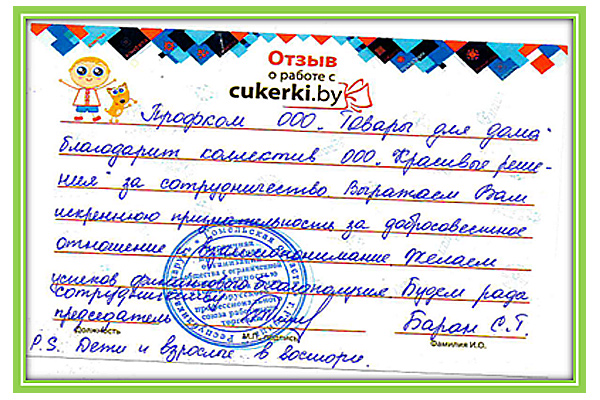 Отзыв
о работе с
cukerki.by
Профком ООО "Товары для дома"
благодарит коллектив ООО "Красивые реше-
ния" за сотрудничество. Выражаем Вам
искреннюю признательность за добросовестное
отношение взаимопонимание. Желаем
успехов финансового благополучия. Будем рады
сотрудничеству
председатель Баран С.Т.
Должность М.П. подпись Фамилия И.О.
P.S. Дети и взрослые в восторге.